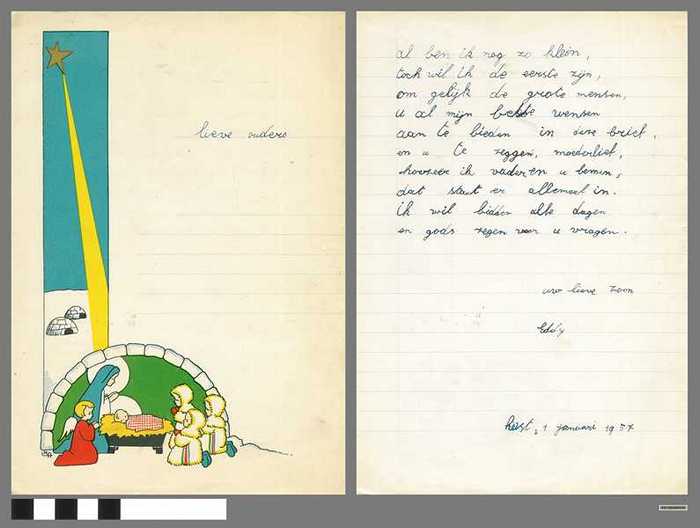 lieve ouders
al ben ik nog zo klein,
toch wil ik de eerste zijn,
om gelijk de grote mensen,
u al mijn beste wensen
aan te bieden in deze brief,
en u te zeggen, moederlief,
hoezeer ik vader en u bemin,
dat staat er allemaal in.
ik wil bidden alle dagen
en gods zegen voor u vragen.
uw lieve zoon
Eddy
heist, 1 januari 1957